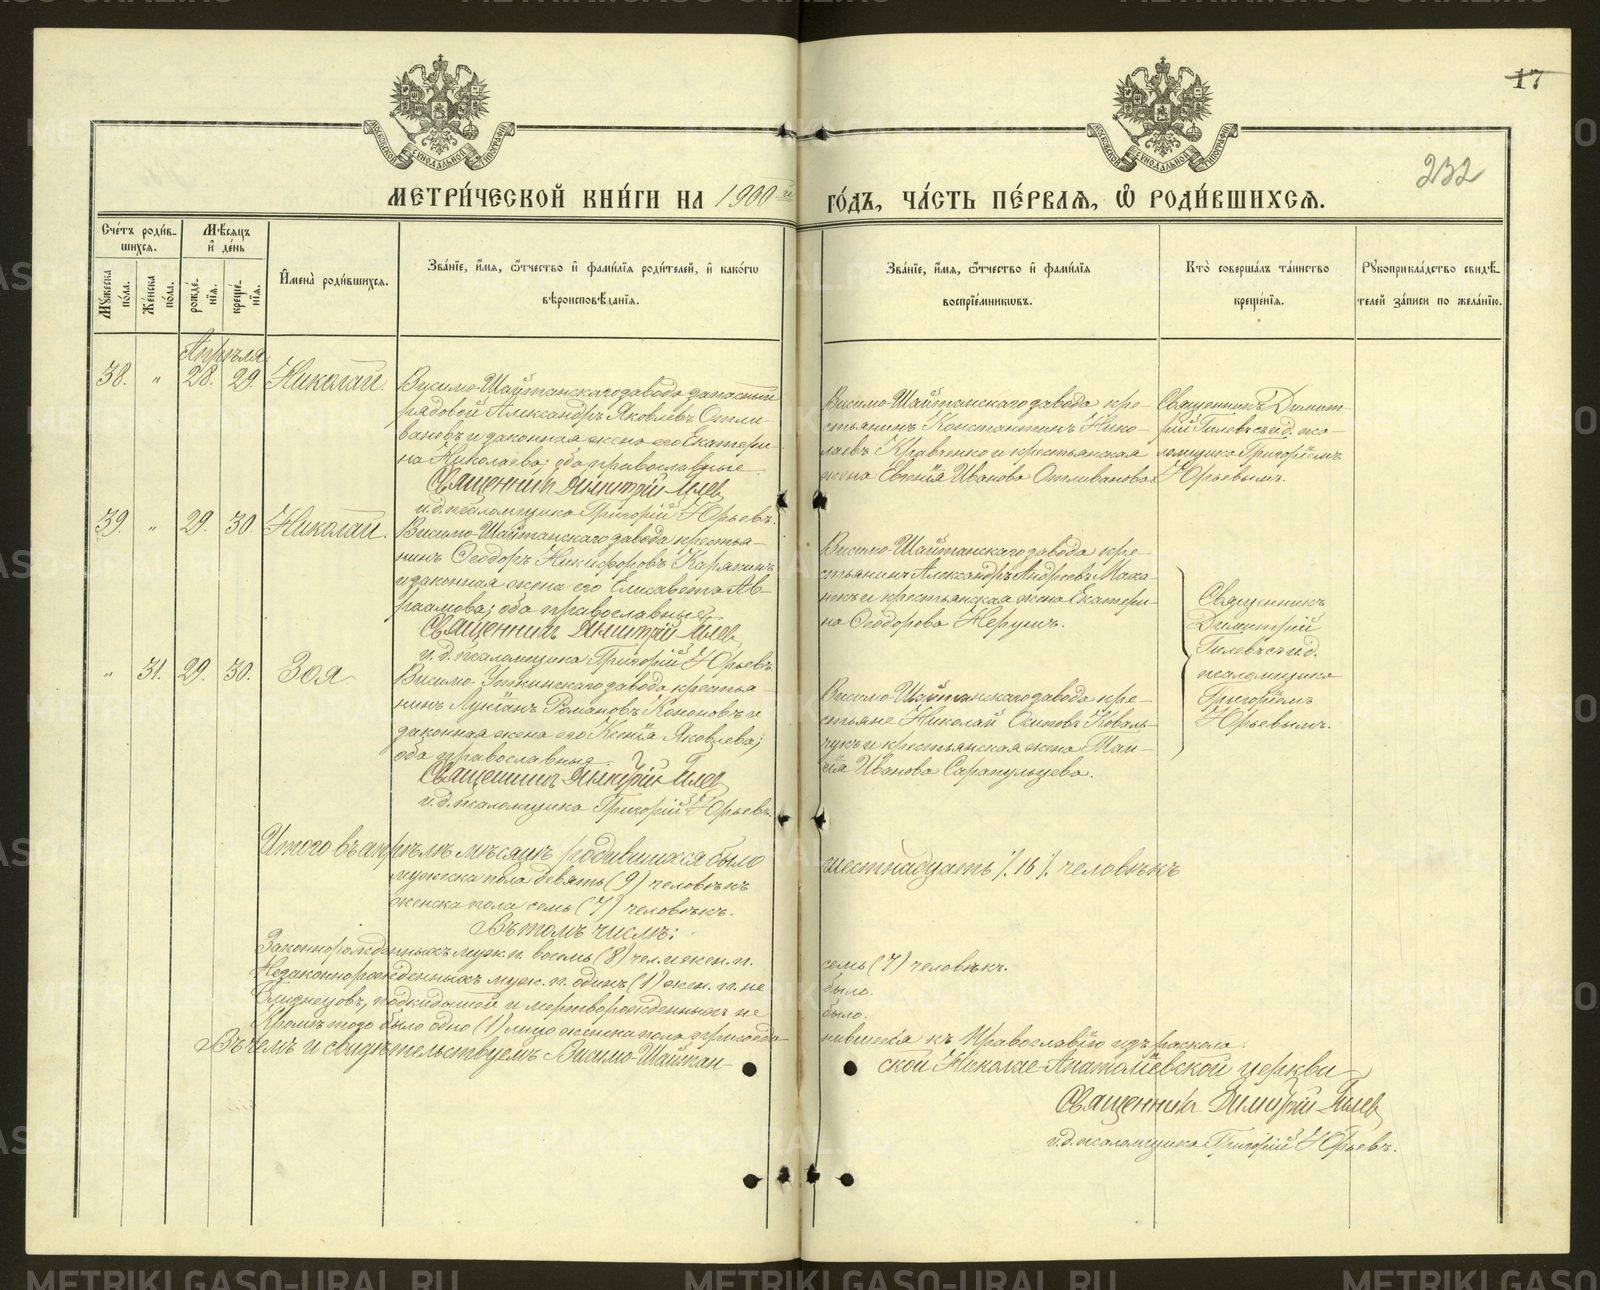 17
232
МЕТРИ́ЧЕСКОЙ КНИ́ГИ НА 1900 й ГО́ДЪ, ЧА́СТЬ ПЕ́РВАѦ, Ѽ РОДИ́ВШИХСѦ.
Счетъ роди́вшихся.
Мужеска по́ла.
Же́нска по́ла.
Мѣсяцъ и де́нь
рожде́нїя.
креще́нїя.
Имена̀ роди́вшихся.
Зва́нїе, и́мя, о́тчество и фами́лїя роди́телей, и како́гѡ
вѣроисповѣ́данїя.
Зва́нїе, и́мя, о́тчество и фами́лїя
воспрїе́мникѡвъ.
Кто̀ соверша́лъ та́инство
креще́нїя.
Рукоприкла́дство свидѣ́-
телей за́писи по жела́нїю.
Апрѣля
38. „ 28. 29. Николай.
Висимо-Шайтанскаго завода запасный
рядовой Александръ Яковлевъ Отли-
вановъ и законная жена его Екатери-
на Николаева; оба православные.
Священникъ Димитрій Гилевъ
и.д. псаломщика Григорій Юрьевъ.
Висимо-Шайтанскаго завода кре-
стьянинъ Константинъ Нико-
лаевъ Кравченко и крестьянская
жена Евгенія Иванова Отливанова.
Священникъ Димит-
рій Гилевъ съ и.д. пса-
ломщика Григоріемъ
Юрьевымъ.
39. „ 29. 30. Николай.
Висимо-Шайтанскаго завода крестья-
нинъ Ѳеодоръ Никифоровъ Карякинъ
и законная жена его Елисавета Ав-
раамова; оба православные.
Священникъ Димитрій Гилевъ
и.д. псаломщика Григорій Юрьевъ.
Висимо-Шайтанскаго завода кре-
стьянинъ Александръ Андреевъ Маха-
некъ и крестьянская жена Екатери-
на Ѳеодорова Нерушъ.
Священникъ
Димитрій
Гилевъ съ и.д.
псаломщика
Григоріемъ
Юрьевымъ.
„ 31. 29. 30. Зоя.
Висимо-Уткинскаго завода крестья-
нинъ Лукіанъ Романовъ Кононовъ и
законная жена его Ксенія Яковлева;
оба православные.
Священникъ Димитрій Гилевъ
и.д. псаломщика Григорій Юрьевъ.
Висимо-Шайтанскаго завода кре-
стьяне Николай Осиповъ Коваль-
чукъ и крестьянская жена Таи-
сія Иванова Сарапульцева.
Итого въ апрѣлѣ мѣсяцѣ родившихся было шестнадцать /16/ человѣкъ
мужеска пола девять (9) человѣкъ
женска пола семь (7) человѣкъ.
Въ томъ числѣ:
Законнорожденныхъ муж. п. восемь (8) чел. и жен. п. семь (7) человѣкъ.
Незаконнорожденныхъ муж. п. одинъ (1) жен. п. не было.
Близнецовъ, подкидышей и мертворожденныхъ не было.
Кромѣ того было одно (1) лицо женска пола присоеди- нившееся къ Православію изъ раскола.
Въ чемъ и свидѣтельствуемъ Висимо-Шайтан- ской Николае-Анатоліевской церкви
Священникъ Димитрій Гилевъ
и.д. псаломщика Григорій Юрьевъ.
METRIKI.GASO-URAL.RU